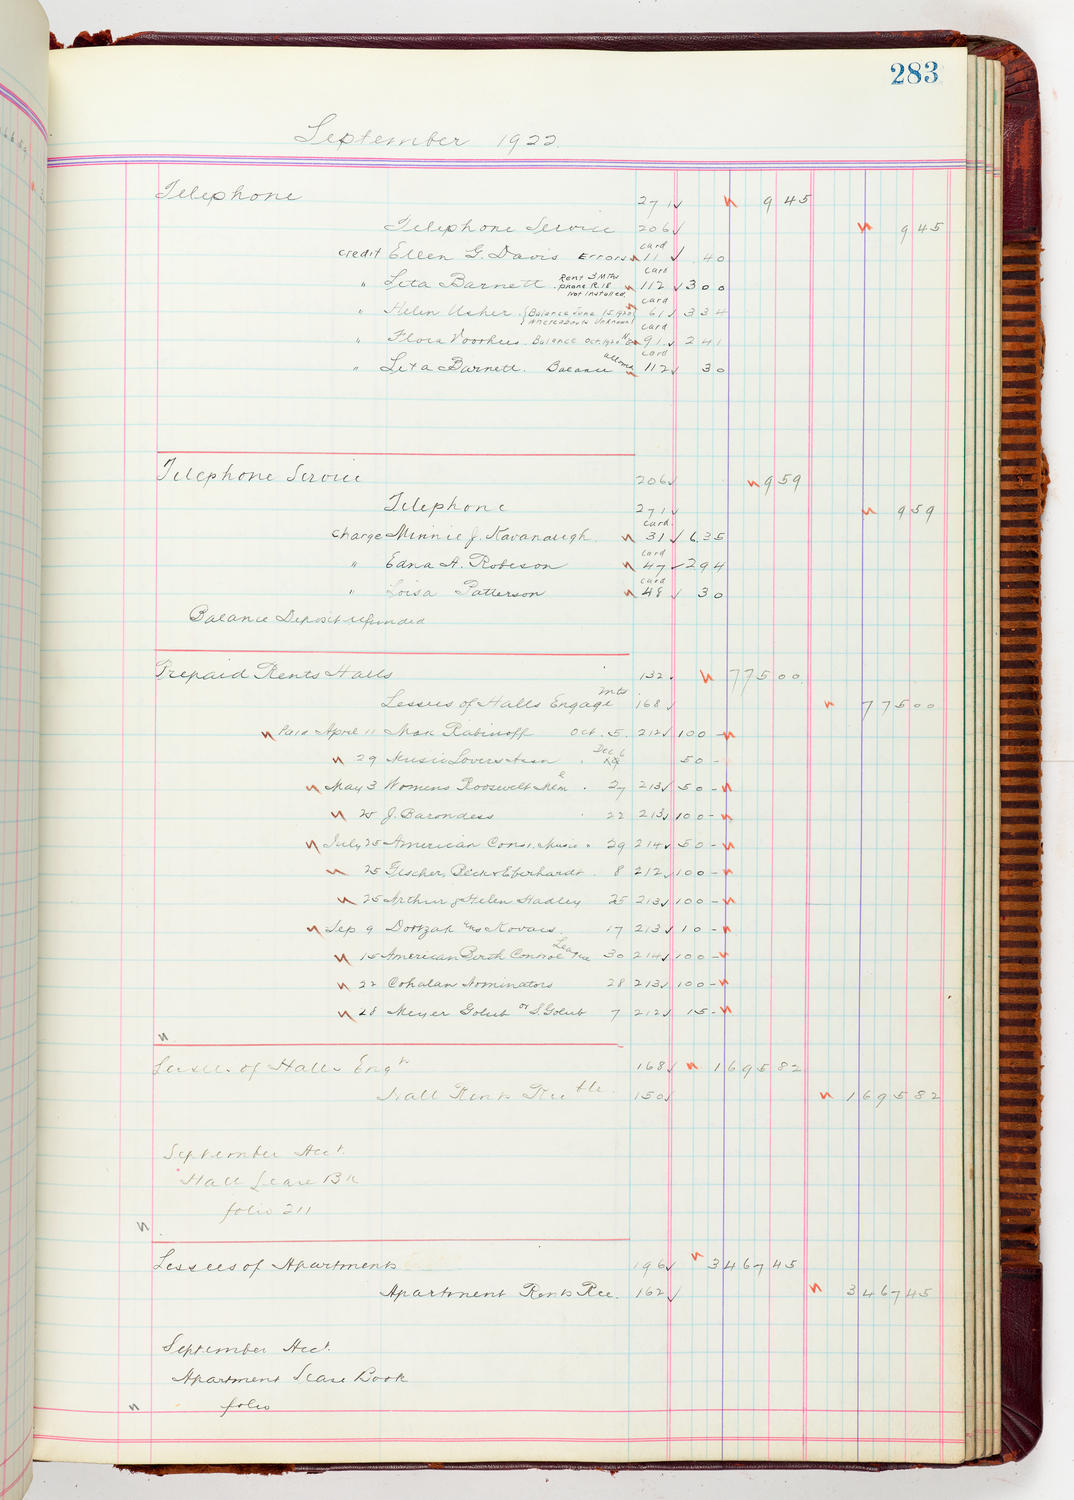 283
September 1922
Telephone 271 9 45
Telephone Service 206 9 45
card
credit Ellen G. Davis Errors 11 40
card
" Lita Barnett Rent 3 Mths phone R. 18 Not installed 112 3 00
card
" Helen Usher (Balance June 15, 1920 whereabouts unknown) 61 3 34
card
" Flora Voorhees. Balance Oct. 1920 91 2 41
card
" Lita Barnett. Balance allowed 112 30
Telephone Service 206 9 59
Telephone 271 9 59
card
charge Minnie J. Kavanaugh 31 6 35
card
" Edna A. Robeson 47 2 94
card
" Loisa Patterson 48 30
Balance Deposit refunded
Prepaid Rents Halls 132 775 00
Lessees of Halls Engagements 168 775 00
Paid April 11 Max Rabinoff Oct. 5. 212 100 -
29 Music Lovers Assn Dec 6 50 -
May 3 Womens Roosevelt Mem. 27 213 50 -
25 J. Barondess 22 213 100 -
July 25 American Cons. Music 29 214 50 -
25 Fischer, Beck & Eberhardt 8 212 100 -
25 Arthur & Helen Hadley 25 213 100 -
Sep 9 Dortzak Kovacs 17 213 10 -
15 American Birth Control League 30 214 100 -
22 Cohalan Nominators 28 213 100 -
28 Meyer Golub or S. Golub 7 212 15 -
Lessees of Halls Engts 168 1695 82
Hall Rents Rec'ble 150 1695 82
September Acct.
Hall Lease Bk
folio 211
Lessees of Apartments 196 3467 45
Apartment Rents Rec. 162 3467 45
September Acct.
Apartment Lease Book
folio